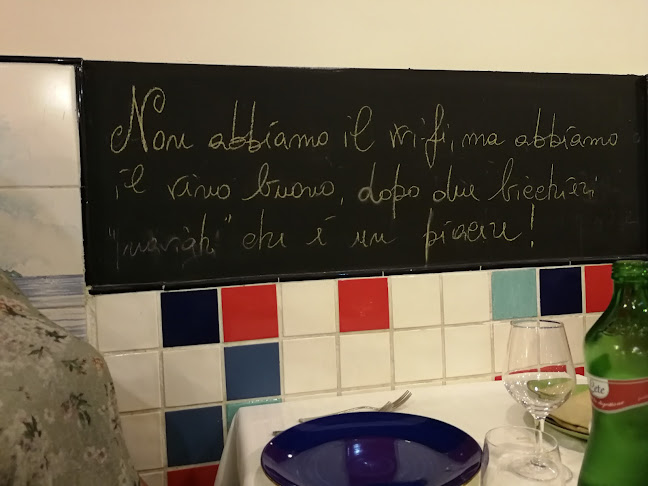 Non abbiamo il wi-fi, ma abbiamo
il vino buono, dopo due bicchieri
"navighi" che è un piacere!